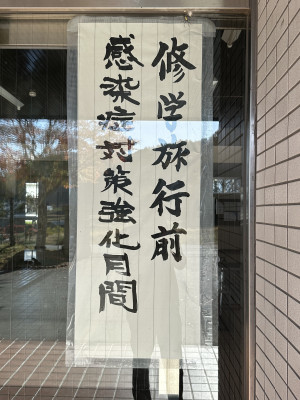 修学旅行前
感染症対策強化月間